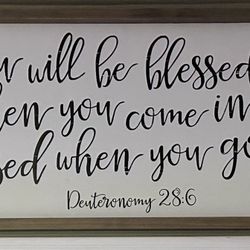 ou will be blessed
hen you come in
sed when you go
Deuteronomy 28:6